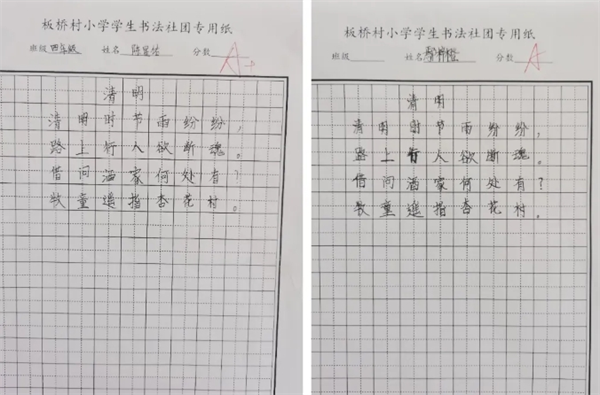 板桥村小学学生书法社团专用纸
班级 四年级 姓名 分数 A
清明
清明时节雨纷纷，
路上行人欲断魂。
借问酒家何处有？
牧童遥指杏花村。
板桥村小学学生书法社团专用纸
班级 姓名 分数 A
清明
清明时节雨纷纷，
路上行人欲断魂。
借问酒家何处有？
牧童遥指杏花村。